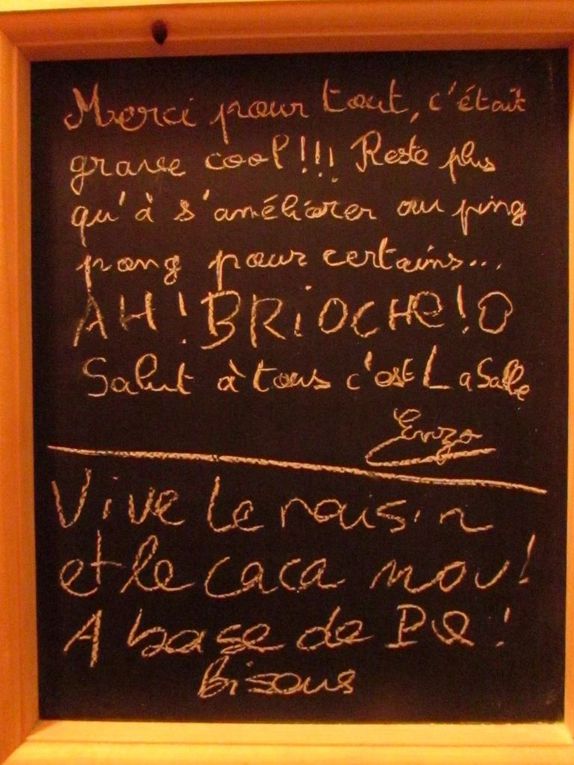 Merci pour tout, c'était
grave cool!!! Reste plus
qu'à s'améliorer au ping
pong pour certains...
AH! BRIOCHE!O
Salut à tous c'est LaSalle
Enzo
Vive le raisin
et le caca mou!
A base de PQ!
Bisous